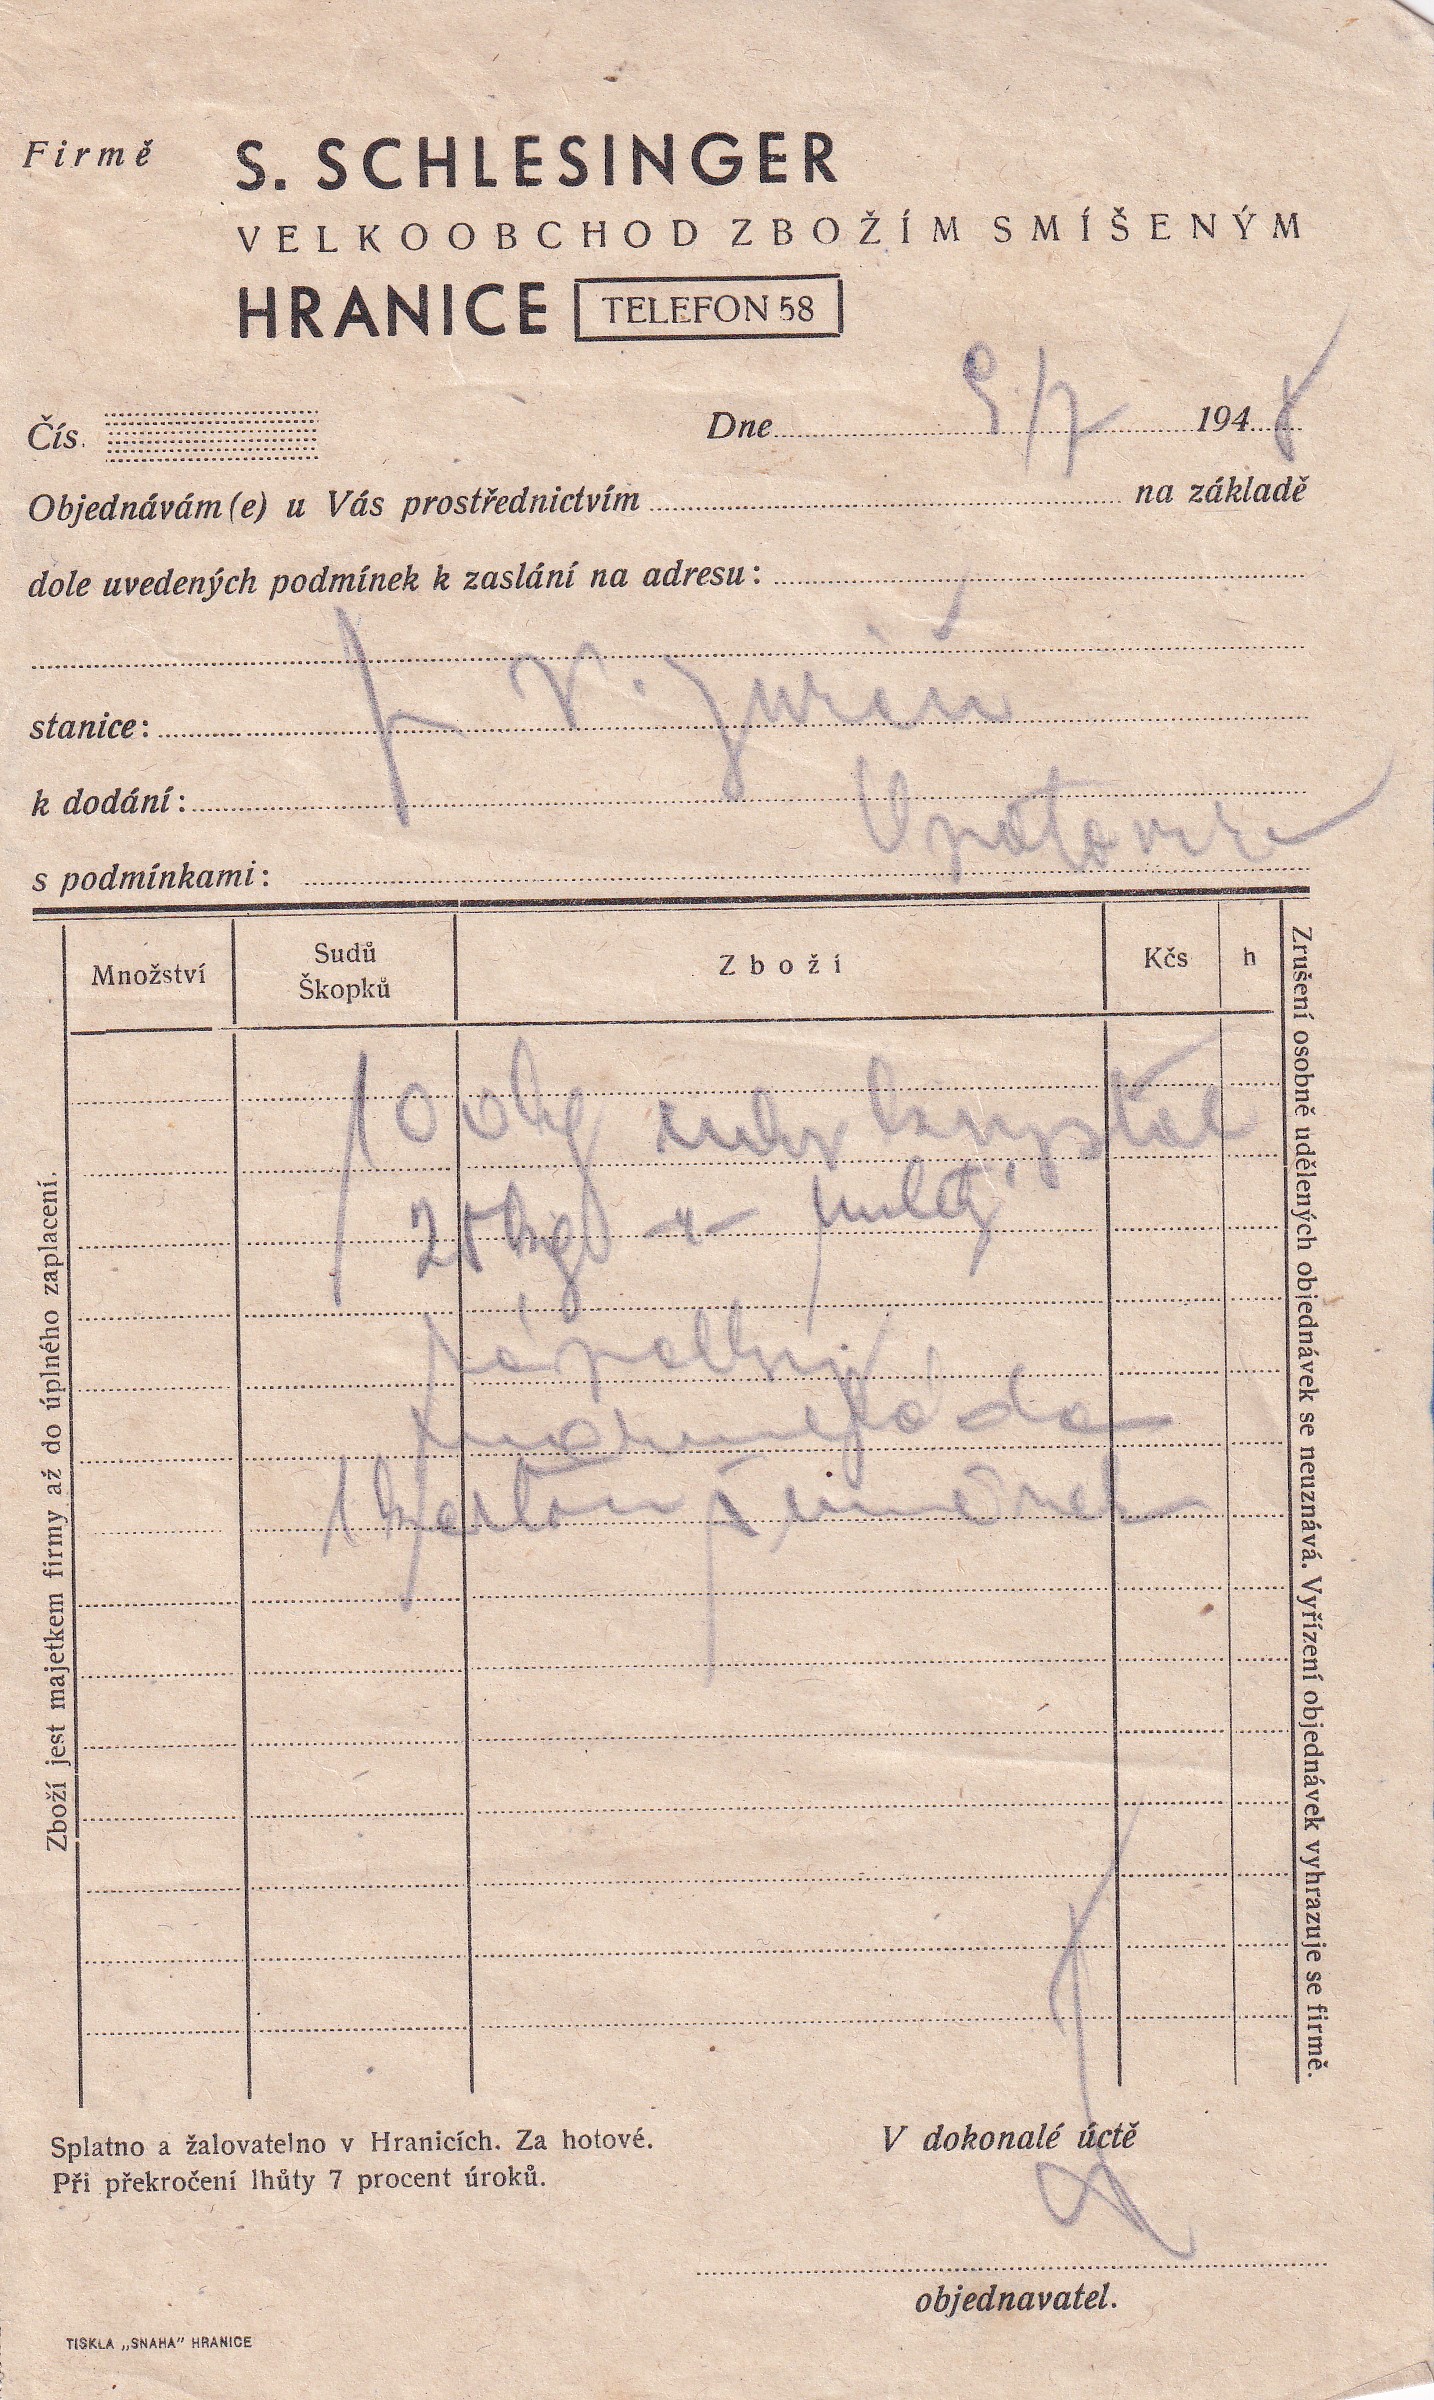 Firmě S. SCHLESINGER
VELKOOBCHOD ZBOŽÍM SMÍŠENÝM
HRANICE TELEFON 58
Čís. Dne 9/7 1948
Objednávám(e) u Vás prostřednictvím na základě
dole uvedených podmínek k zaslání na adresu:
stanice:
k dodání:
s podmínkami:
Množství Sudů Škopků Zboží Kčs h
100 kg cukr krystal
20 kg -"-
1 karton
Zboží jest majetkem firmy až do úplného zaplacení.
Zrušení osobně udělených objednávek se neuznává. Vyřízení objednávek vyhrazuje se firmě.
Splatno a žalovatelno v Hranicích. Za hotové.
Při překročení lhůty 7 procent úroků.
V dokonalé úctě
objednavatel.
TISKLA „SNAHA" HRANICE